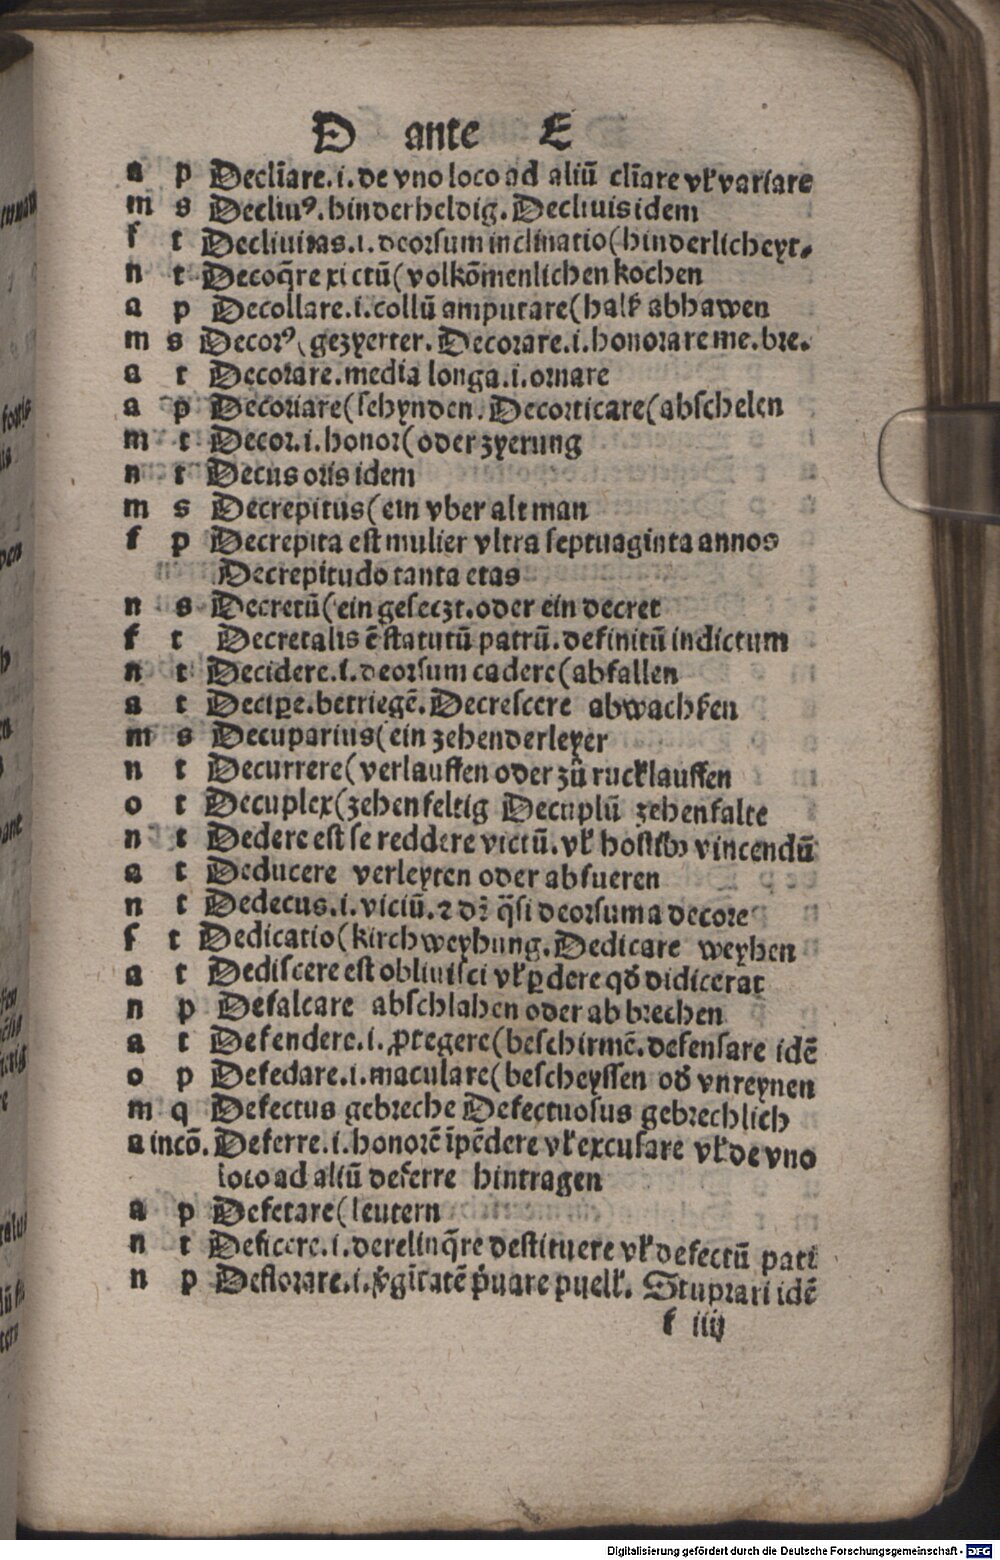 D ante E
a p Decliare.i.de vno loco ad aliū cliare vł variare
m s Decliuꝰ.hinderheldig.Decliuis idem
f t Decliuitas.i.deorsum inclinatio(hinderlicheyt.
n t Decoq̄re xi ctū(volkōmenlichen kochen
a p Decollare.i.collū amputare(halß abhawen
m s Decorꝰ gezyerter.Decorare.i.honorare me.bre.
a t Decorare.media longa.i.ornare
a p Decoriare(schynden.Decorticare(abschelen
m t Decor.i.honor(oder zyerung
n t Decus oris idem
m s Decrepitus(ein vber alt man
f p Decrepita est mulier vltra septuaginta annos
Decrepitudo tanta etas
n s Decretū(ein geseczt.oder ein decret
f t Decretalis ē statutū patrū.definitū indictum
n t Decidere.i.deorsum cadere(abfallen
a t Deciꝑe.betriegē.Decrescere abwachßen
m s Decuparius(ein zehenderleyer
n t Decurrere(verlauffen oder zů rucklauffen
o t Decuplex(zehenfeltig Decuplū zehenfalte
n t Dedere est se reddere victū.vł hostibꝫ vincendū
a t Deducere verleyten oder abfueren
n t Dedecus.i.viciū.⁊ dr̄ q̄si deorsum a decore
f t Dedicatio(kirchweyhung.Dedicare weyhen
a t Dediscere est obliuisci vł ꝑdere qđ didicerat
n p Defalcare abschlahen oder abbrechen
a t Defendere.i.ꝓtegere(beschirmē.defensare idē
o p Defedare.i.maculare(bescheyssen ođ vnreynen
m q Defectus gebreche Defectuosus gebrechlich
a incō. Deferre.i.honorē īpēdere vł excusare vł de vno
loco ad aliū deferre hintragen
a p Defetare(leutern
n t Deficere.i.derelinq̄re destituere vł defectū pati
n p Deflorare.i.v̓gītatē p̓uare puelł. Stuprari idē
f iiij
Digitalisierung gefördert durch die Deutsche Forschungsgemeinschaft - DFG